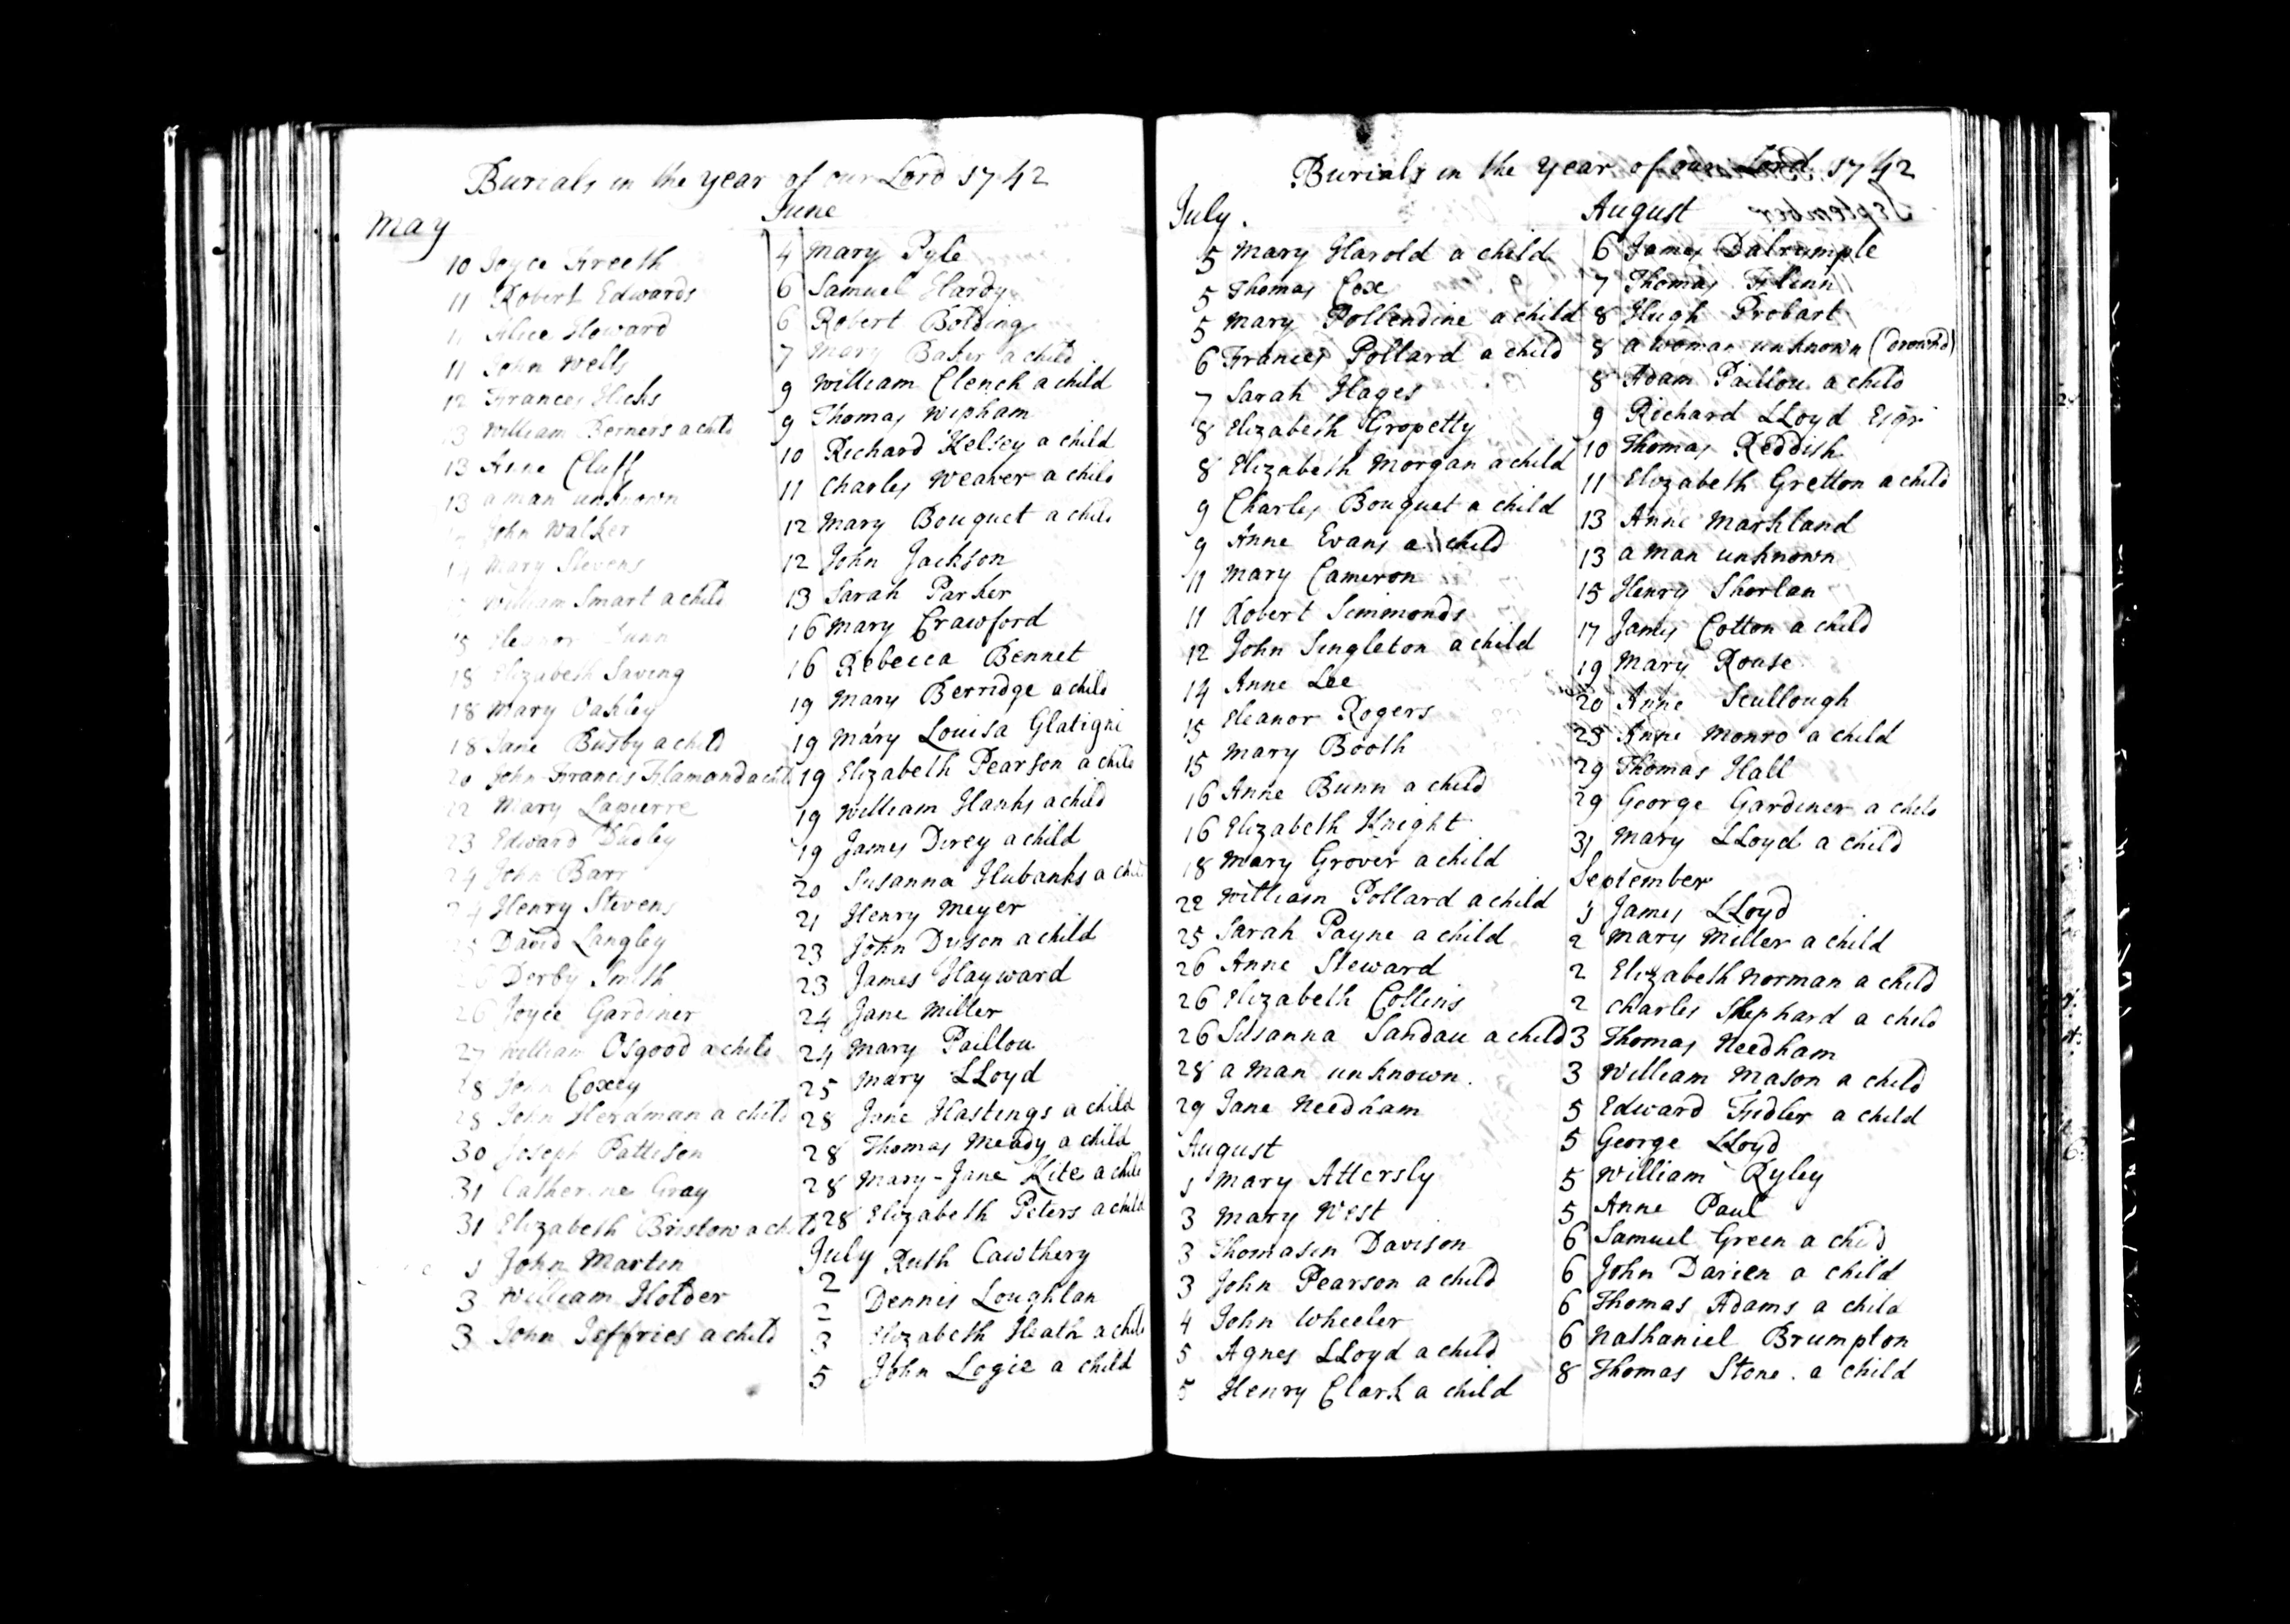 Burials in the year of our Lord 1742
May
10 Joyce Freeth
11 Robert Edwards
11 Alice Howard
11 John Wells
12 Frances Hicks
13 William Berners a child
13 Anne Cluff
13 a man unknown
John Walker
14 Mary Stevens
William Smart a child
Eleanor Dunn
18 Elizabeth Saving
18 Mary Oakley
18 Jane Busby a child
20 John Francis Flamand a child
22 Mary Lapierre
23 Edward Dudley
24 John Barr
24 Henry Stevens
25 David Langley
26 Derby Smith
26 Joyce Gardiner
27 William Osgood a child
28 John Coxey
28 John Herdman a child
30 Joseph Pattison
31 Catherine Gray
31 Elizabeth Bristow a child
1 John Martin
3 William Holder
3 John Jeffries a child
June
4 Mary Pyle
6 Samuel Hardy
6 Robert Bolding
7 Mary Baker a child
9 William Clench a child
9 Thomas Wepham
10 Richard Kelsey a child
11 Charles Weaver a child
12 Mary Bouquet a child
12 John Jackson
13 Sarah Parker
16 Mary Crawford
16 Rebecca Bennet
19 Mary Berridge a child
19 Mary Louisa Glatigni
19 Elizabeth Pearson a child
19 William Hanks a child
19 James Direy a child
20 Susanna Hubanks a chi
21 Henry Meyer
23 John Dyson a child
23 James Hayward
24 Jane Miller
24 Mary Paillou
25 Mary LLoyd
28 Jane Hastings a child
28 Thomas Meady a child
28 Mary-Jane Kite a child
28 Elizabeth Peters a child
July Ruth Cawthery
2
2 Dennis Loughlan
3 Elizabeth Heath a child
5 John Logie a child
Burials in the year of our Lord 1742
July.
5 Mary Harold a child
5 Thomas Cox
5 Mary Pollendine a child
6 Frances Pollard a child
7 Sarah Hages
8 Elizabeth Gropetty
8 Elizabeth Morgan a child
9 Charles Bouquet a child
9 Anne Evans a child
11 Mary Cameron
11 Robert Simmonds
12 John Singleton a child
14 Anne Lee
15 Eleanor Rogers
15 Mary Booth
16 Anne Bunn a child
16 Elizabeth Knight
18 Mary Grover a child
22 William Pollard a child
25 Sarah Payne a child
26 Anne Steward
26 Elizabeth Collins
26 Susanna Sandau a child
28 a man unknown.
29 Jane Needham
August
1 Mary Attersly
3 Mary West
3 Thomasin Davison
3 John Pearson a child
4 John Wheeler
5 Agnes LLoyd a child
5 Henry Clark a child
August
6 James Dalrumple
7 Thomas Flinn
8 Hugh Probart
8 a woman unknown (drownd)
8 Adam Paillou a child
9 Richard LLoyd Esqr
10 Thomas Reddish
11 Elizabeth Gretton a child
13 Anne Markland
13 a man unknown
15 Henry Shorlan
17 James Cotton a child
19 Mary Rouse
20 Anne Scullough
25 Anne Monro a child
29 Thomas Hall
29 George Gardiner a child
31 Mary LLoyd a child
September
1 James LLoyd
2 Mary Miller a child
2 Elizabeth Norman a child
2 Charles Shephard a child
3 Thomas Needham
3 William Mason a child
5 Edward Fidler a child
5 George LLoyd
5 William Ryley
5 Anne Paul
6 Samuel Green a child
6 John Darien a child
6 Thomas Adams a child
6 Nathaniel Brumpton
8 Thomas Stone. a child